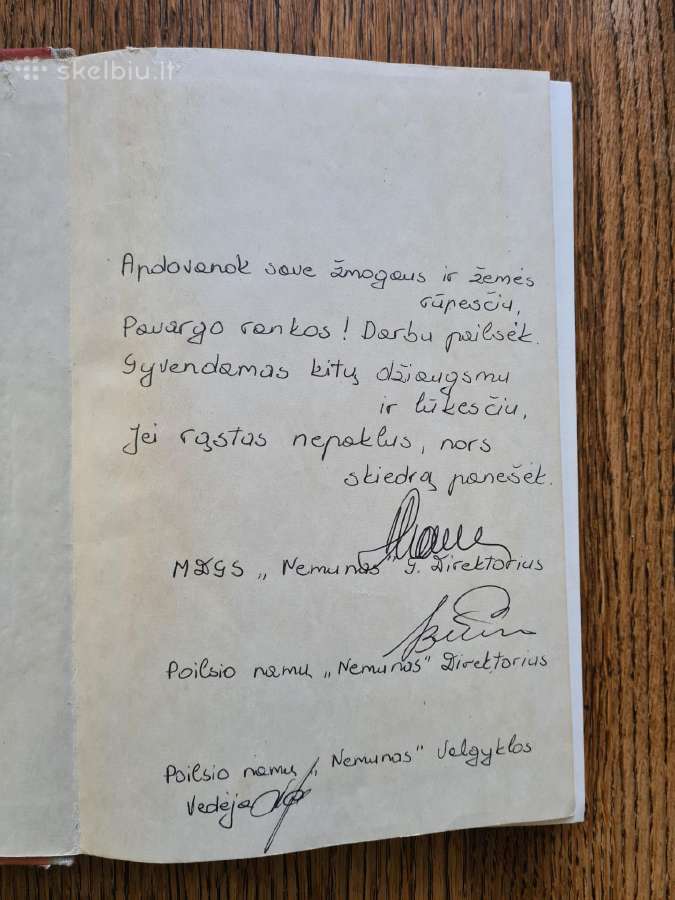 skelbiu.lt
Apdovanok save žmogaus ir žemės
rūpesčiu,
Pavargo rankos! Darbu pailsėk.
Gyvendamas kitų džiaugsmu
ir lūkesčiu,
Jei rąstas nepaklus, nors
skiedrą panešėk.
MDGS „Nemunas" G. Direktorius
Poilsio namų „Nemunas" Direktorius
Poilsio namų „Nemunas" Valgyklos
Vedėja